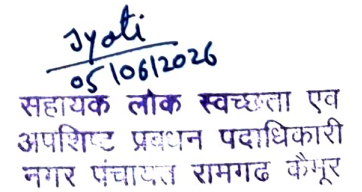 Jyoti
05/06/2026
सहायक लोक स्वच्छता एव
अपशिष्ट प्रबधन पदाधिकारी
नगर पंचायत रामगढ कैमूर